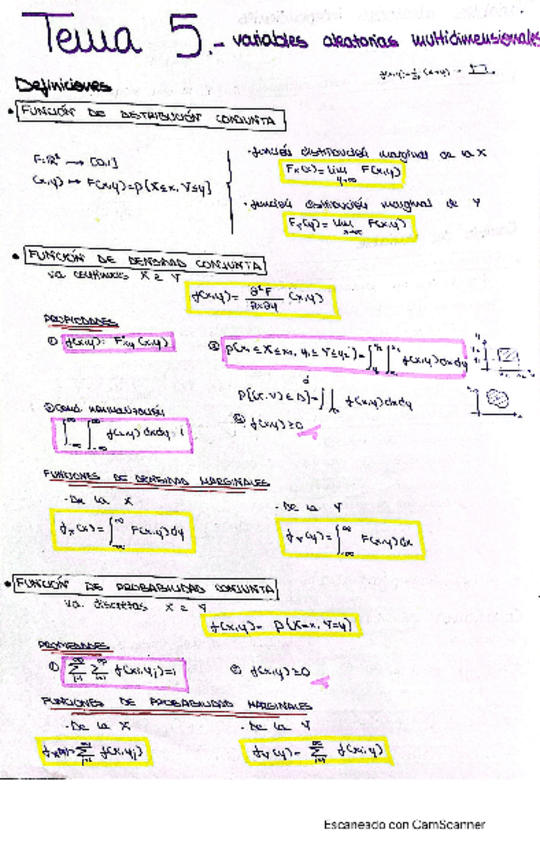 Tema 5.- variables aleatorias multidimensionales
Definiciones
• FUNCIÓN DE DISTRIBUCIÓN CONJUNTA
F:ℝ² → [0,1]
(x,y) ↦ F(x,y)=P(X≤x, Y≤y)
·función distribución marginal de la X
Fx(x)=lim F(x,y)
y→∞
·función distribución marginal de Y
Fy(y)=lim F(x,y)
x→∞
• FUNCIÓN DE DENSIDAD CONJUNTA
va continuas X e Y
f(x,y)= ∂²F/∂x∂y (x,y)
PROPIEDADES
① f(x,y)= Fxy(x,y)
P(x₁≤X≤x₂, y₁≤Y≤y₂)=∫∫ f(x,y)dxdy
P[(X,Y)∈D]=∫∫D f(x,y)dxdy
Cond normalización
∫∫ f(x,y) dxdy=1
f(x,y)≥0
FUNCIONES DE DENSIDAD MARGINALES
·De la X
·De la Y
fx(x)=∫ F(x,y)dy
fy(y)=∫ F(x,y)dx
• FUNCIÓN DE PROBABILIDAD CONJUNTA
va. discretas X e Y
f(x,y)= P(X=x, Y=y)
PROPIEDADES
① ∑ ∑ f(xi,yj)=1
② f(x,y)≥0
FUNCIONES DE PROBABILIDAD MARGINALES
·De la X
·De la Y
fx(x)=∑ f(x,yj)
fy(y)=∑ f(xi,y)
Escaneado con CamScanner